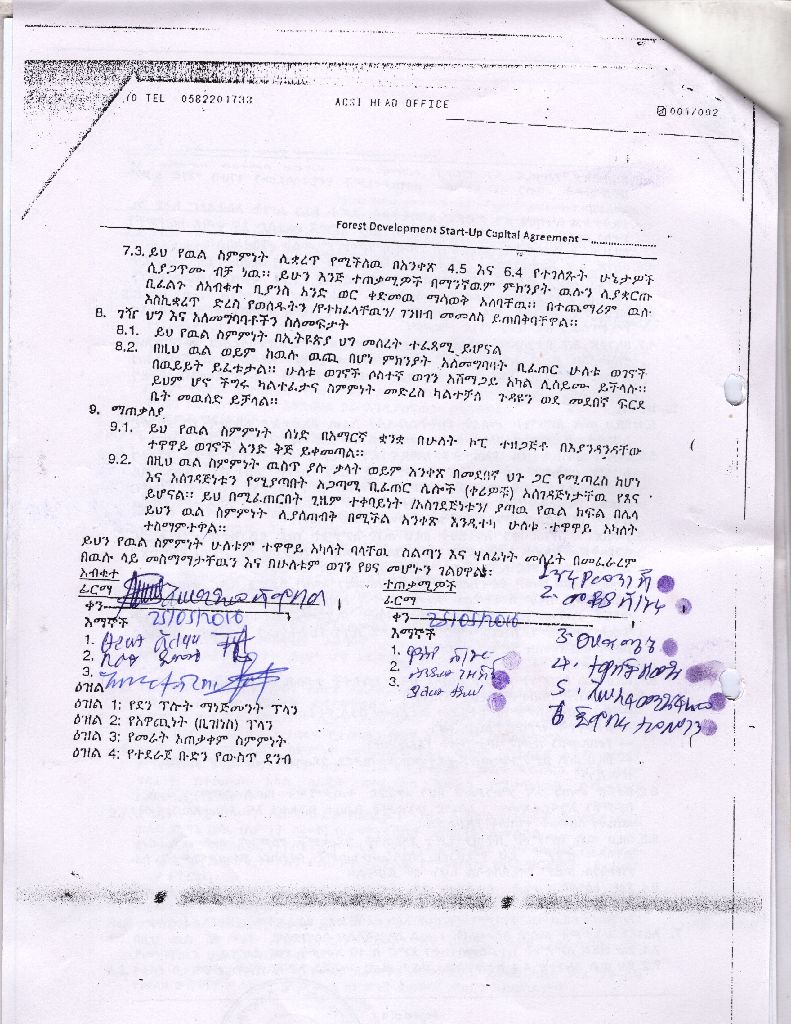 /0 TEL 0582201733 ACSI HEAD OFFICE 001/002
Forest Development Start-Up Capital Agreement – ....................
7.3. ይህ የዉል ስምምነት ሊቋረጥ የሚችለዉ በአንቀጽ 4.5 እና 6.4 የተገለጹት ሁኔታዎች
ሲያጋጥሙ ብቻ ነዉ፡፡ ይሁን እንጅ ተጠቃሚዎች በማንኛዉም ምክንያት ዉሉን ሊያቋርጡ
ቢፈልጉ ለአብቁተ ቢያንስ አንድ ወር ቀድመዉ ማሳወቅ አለባቸዉ፡፡ በተጨማሪም ዉሉ
እስኪቋረጥ ድረስ የወሰዱትን /የተከፈላቸዉን/ ገንዘብ መመለስ ይጠበቅባቸዋል፡፡
8. ገዥ ህግ እና አለመግባባቶችን ስለመፍታት
8.1. ይህ የዉል ስምምነት በኢትዩጵያ ህግ መሰረት ተፈጻሚ ይሆናል
8.2. በዚህ ዉል ወይም ከዉሉ ዉጪ በሆነ ምክንያት አለመግባባት ቢፈጠር ሁለቱ ወገኖች
በዉይይት ይፈቱታል፡፡ ሁለቱ ወገኖች ሶስተኛ ወገን አሸማጋይ አካል ሊሰይሙ ይችላሉ፡፡
ይህም ሆኖ ችግሩ ካልተፈታና ስምምነት መድረስ ካልተቻለ ጉዳዩን ወደ መደበኛ ፍርድ
ቤት መዉሰድ ይቻላል፡፡
9. ማጠቃለያ
9.1. ይህ የዉል ስምምነት ሰነድ በአማርኛ ቋንቋ በሁለት ኮፒ ተዘጋጅቶ በእያንዳንዳቸው
ተዋዋይ ወገኖች አንድ ቅጅ ይቀመጣል፡፡
9.2. በዚህ ዉል ስምምነት ዉስጥ ያሉ ቃላት ወይም አንቀጽ በመደበኛ ህጉ ጋር የሚጣረስ ከሆነ
እና አስገዳጅነቱን የሚያጣበት አጋጣሚ ቢፈጠር ሌሎች (ቀሪዎቹ) አስገዳጅነታቸዉ የፀና
ይሆናል፡፡ ይህ በሚፈጠርበት ጊዜም ተቀባይነት /አስገደጅነቱን/ ያጣዉ የዉል ክፍል በሌላ
ይህን ዉል ስምምነት ሊያስጠብቅ በሚችል አንቀጽ እንዲተካ ሁለቱ ተዋዋይ አካላት
ተስማምተዋል፡፡
ይህን የዉል ስምምነት ሁለቱም ተዋዋይ አካላት ባላቸዉ ስልጣን እና ሃላፊነት መሰረት በመፈራረም
በዉሉ ላይ መስማማታቸዉን እና በሁለቱም ወገን የፀና መሆኑን ገልፀዋል፡፡
አብቁተ ተጠቃሚዎች
ፊርማ ፊርማ
ቀን 25/05/2010 ቀን 25/05/2010
እማኞች እማኞች
1. 1.
2. 2.
3. 3.
ዕዝል
ዕዝል 1: የደን ፕሎት ማነጅመንት ፕላን
ዕዝል 2: የአዋጪነት (ቢዝነስ) ፕላን
ዕዝል 3: የመሬት አጠቃቀም ስምምነት
ዕዝል 4: የተደራጀ ቡድን የውስጥ ደንብ